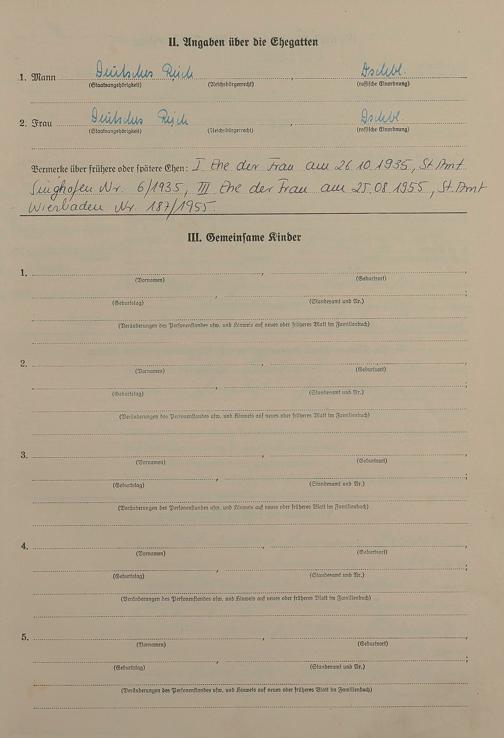 II. Angaben über die Ehegatten
1. Mann Deutsches Reich Dtschbl.
(Staatsangehörigkeit) (Reichsbürgerrecht) (rassische Einordnung)
2. Frau Deutsches Reich Dtschbl.
(Staatsangehörigkeit) (Reichsbürgerrecht) (rassische Einordnung)
Vermerke über frühere oder spätere Ehen: I Ehe der Frau am 26.10.1935, St.Amt
Singhofen Nr. 6/1935, III Ehe der Frau am 25.08.1955, St.Amt
Wiesbaden Nr. 187/1955.
III. Gemeinsame Kinder
1. , ,
(Vornamen) (Geburtsort)
, ;
(Geburtstag) (Standesamt und Nr.)
(Veränderungen des Personenstandes usw. und Hinweis auf neues oder früheres Blatt im Familienbuch)
2. , ,
(Vornamen) (Geburtsort)
, ;
(Geburtstag) (Standesamt und Nr.)
(Veränderungen des Personenstandes usw. und Hinweis auf neues oder früheres Blatt im Familienbuch)
3. , ,
(Vornamen) (Geburtsort)
, ;
(Geburtstag) (Standesamt und Nr.)
(Veränderungen des Personenstandes usw. und Hinweis auf neues oder früheres Blatt im Familienbuch)
4. , ,
(Vornamen) (Geburtsort)
, ;
(Geburtstag) (Standesamt und Nr.)
(Veränderungen des Personenstandes usw. und Hinweis auf neues oder früheres Blatt im Familienbuch)
5. , ,
(Vornamen) (Geburtsort)
, ;
(Geburtstag) (Standesamt und Nr.)
(Veränderungen des Personenstandes usw. und Hinweis auf neues oder früheres Blatt im Familienbuch)